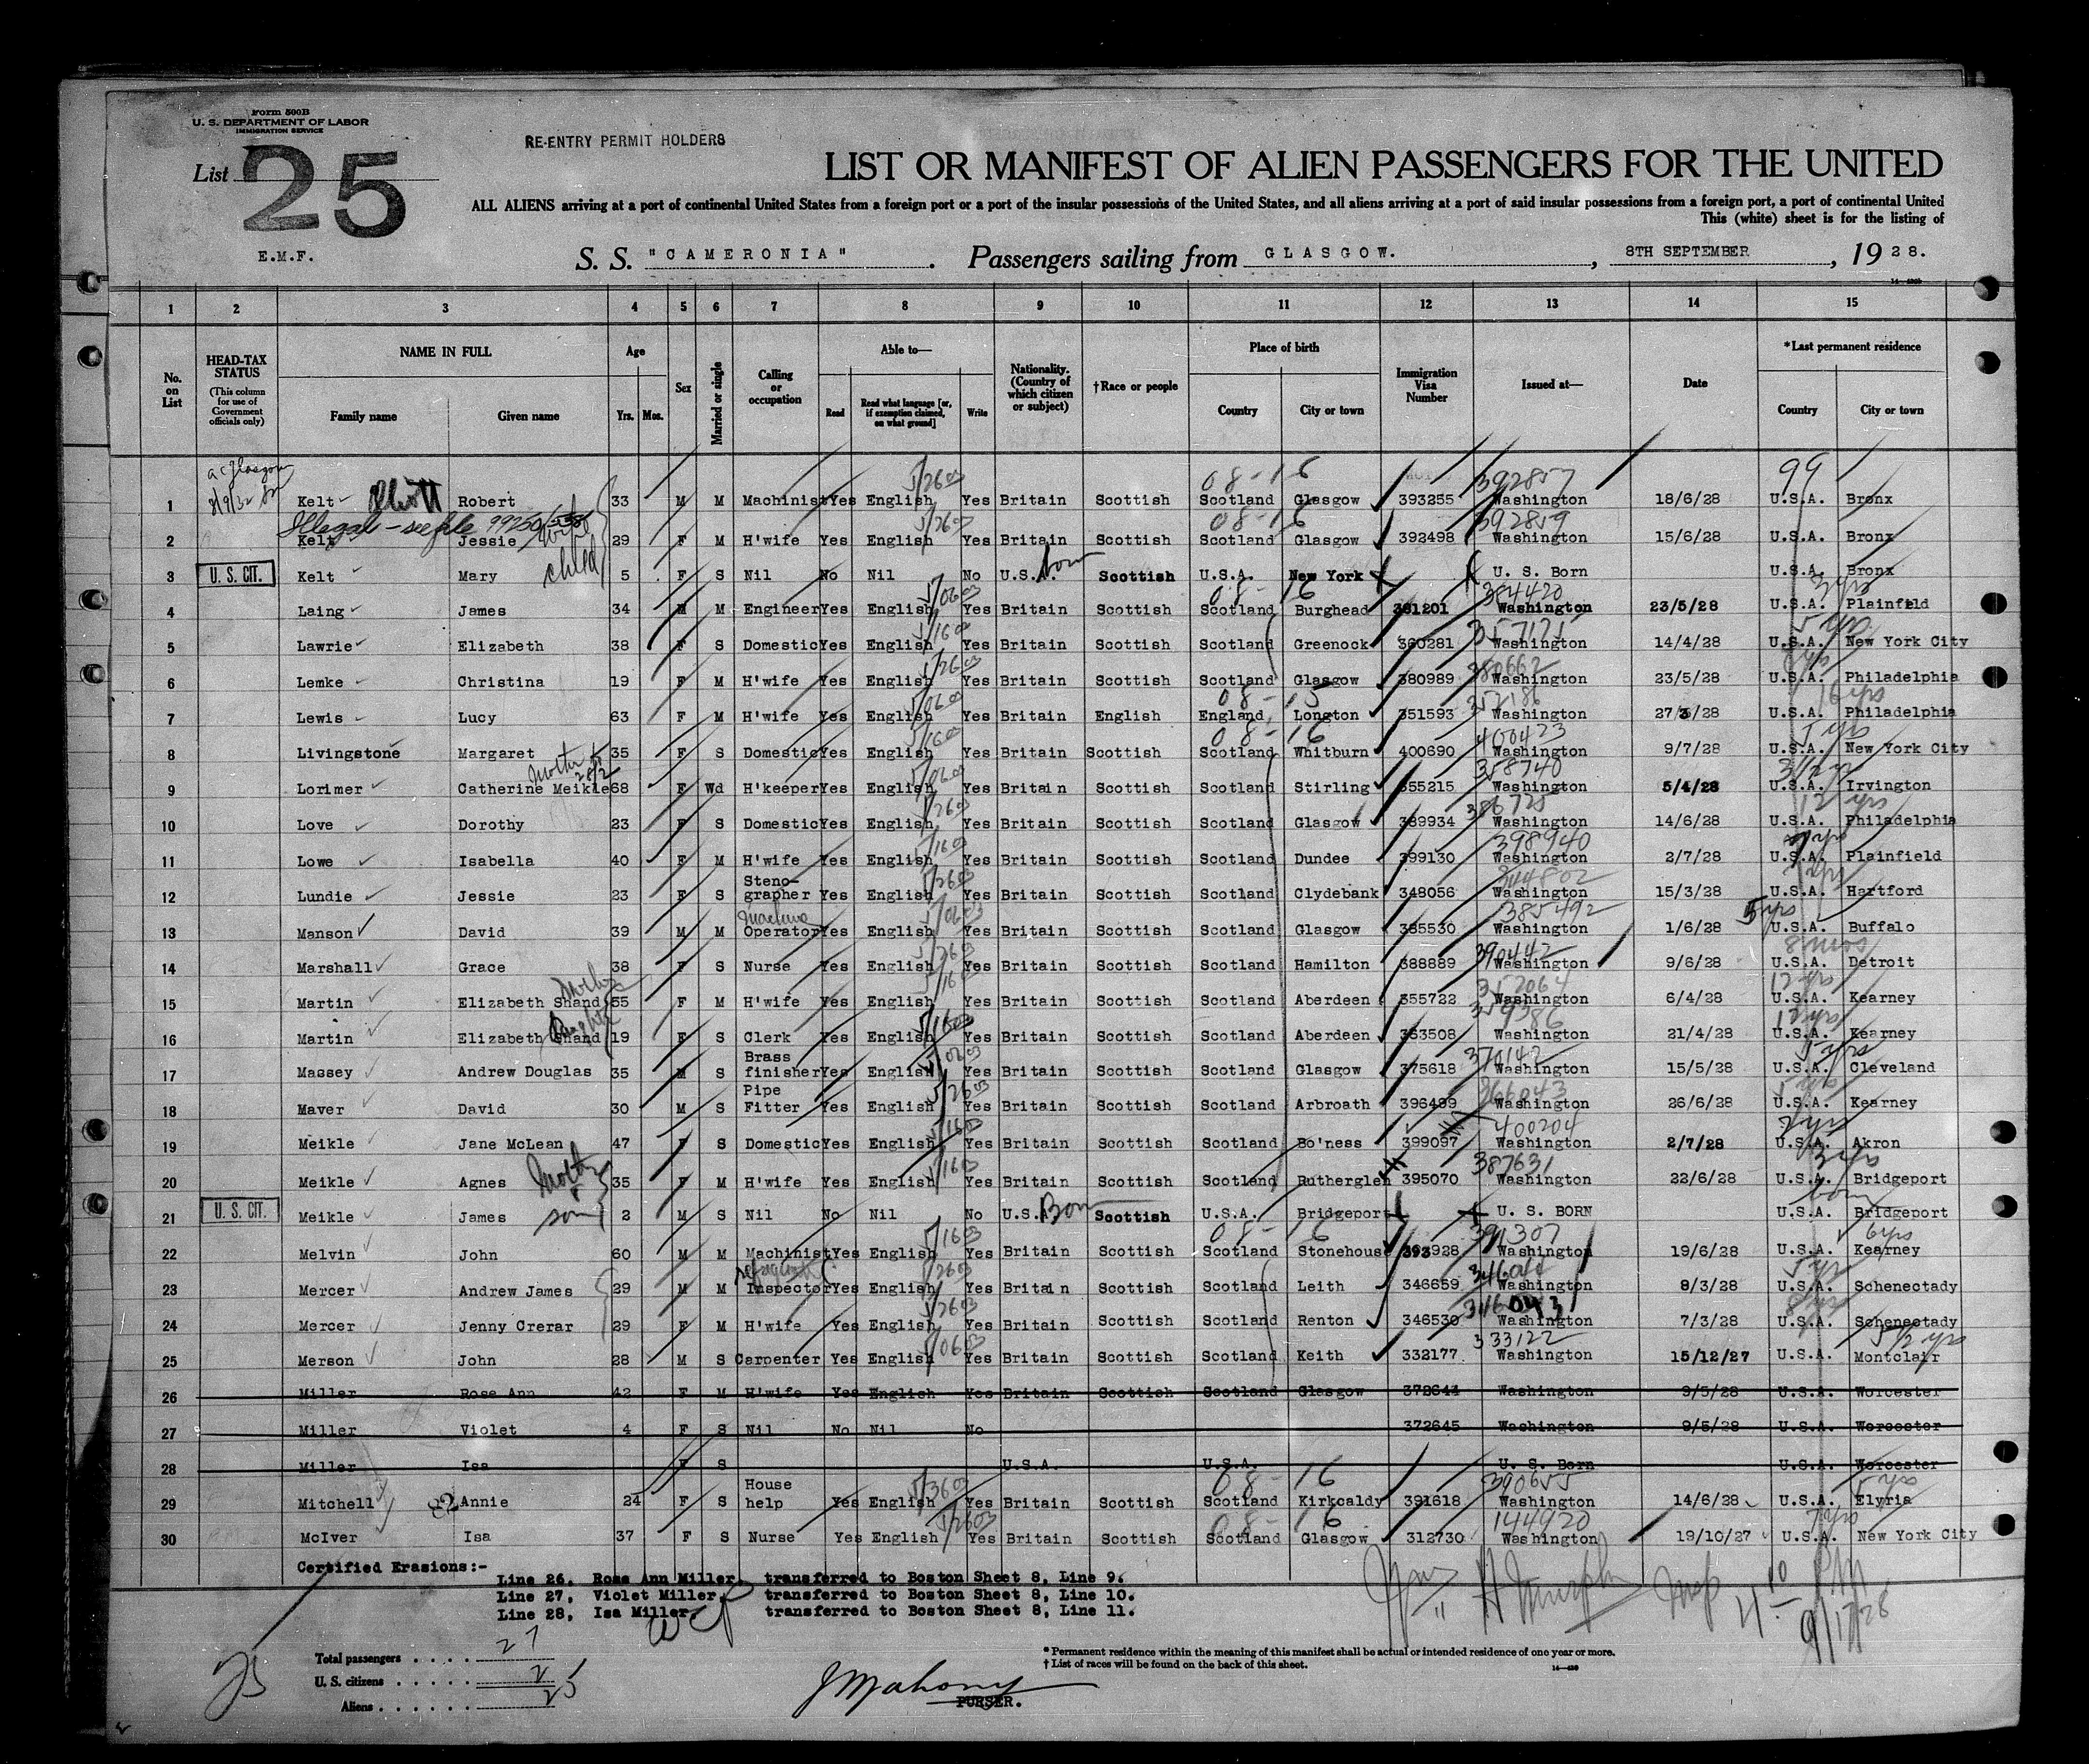 Form 500B
U. S. DEPARTMENT OF LABOR
IMMIGRATION SERVICE
RE-ENTRY PERMIT HOLDERS
List 25
LIST OR MANIFEST OF ALIEN PASSENGERS FOR THE UNITED
ALL ALIENS arriving at a port of continental United States from a foreign port or a port of the insular possessions of the United States, and all aliens arriving at a port of said insular possessions from a foreign port, a port of continental United
This (white) sheet is for the listing of
E.M.F.
S. S. "CAMERONIA". Passengers sailing from GLASGOW., 8TH SEPTEMBER, 1928.
1 2 3 4 5 6 7 8 9 10 11 12 13 14 15
No. on List
HEAD-TAX STATUS (This column for use of Government officials only)
NAME IN FULL Family name Given name
Age Yrs. Mos.
Sex
Married or single
Calling or occupation
Able to— Read Read what language [or, if exemption claimed, on what ground] Write
Nationality. (Country of which citizen or subject)
†Race or people
Place of birth Country City or town
Immigration Visa Number
Issued at—
Date
*Last permanent residence Country City or town
08-16 392857 99
1 Kelt Robert 33 M M Machinist Yes English Yes Britain Scottish Scotland Glasgow 393255 Washington 18/6/28 U.S.A. Bronx
Illegal - see file
08-16 392859
2 Kelt Jessie wife 29 F M H'wife Yes English Yes Britain Scottish Scotland Glasgow 392498 Washington 15/6/28 U.S.A. Bronx
3 U. S. CIT. Kelt Mary child 5 F S Nil No Nil No U.S.A. born Scottish U.S.A. New York U. S. Born U.S.A. Bronx
08-16 384420
4 Laing James 34 M M Engineer Yes English Yes Britain Scottish Scotland Burghead 381201 Washington 23/5/28 U.S.A. Plainfield
357121
5 Lawrie Elizabeth 38 F S Domestic Yes English Yes Britain Scottish Scotland Greenock 360281 Washington 14/4/28 U.S.A. New York City
380662
6 Lemke Christina 19 F M H'wife Yes English Yes Britain Scottish Scotland Glasgow 380989 Washington 23/5/28 U.S.A. Philadelphia
08-15 352186 16 yrs
7 Lewis Lucy 63 F M H'wife Yes English Yes Britain English England Longton 351593 Washington 27/3/28 U.S.A. Philadelphia
08-16 400423
8 Livingstone Margaret 35 F S Domestic Yes English Yes Britain Scottish Scotland Whitburn 400690 Washington 9/7/28 U.S.A. New York City
358740
9 Lorimer Catherine Meikle 68 F Wd H'keeper Yes English Yes Britain Scottish Scotland Stirling 355215 Washington 5/4/28 U.S.A. Irvington
386725
10 Love Dorothy 23 F S Domestic Yes English Yes Britain Scottish Scotland Glasgow 389934 Washington 14/6/28 U.S.A. Philadelphia
398940
11 Lowe Isabella 40 F M H'wife Yes English Yes Britain Scottish Scotland Dundee 399130 Washington 2/7/28 U.S.A. Plainfield
344802
12 Lundie Jessie 23 F S Steno-grapher Yes English Yes Britain Scottish Scotland Clydebank 348056 Washington 15/3/28 U.S.A. Hartford
385492 5 yrs
13 Manson David 39 M M Machine Operator Yes English Yes Britain Scottish Scotland Glasgow 385530 Washington 1/6/28 U.S.A. Buffalo
390442
14 Marshall Grace 38 F S Nurse Yes English Yes Britain Scottish Scotland Hamilton 388889 Washington 9/6/28 U.S.A. Detroit
352064
15 Martin Elizabeth Shand Mother 55 F M H'wife Yes English Yes Britain Scottish Scotland Aberdeen 355722 Washington 6/4/28 U.S.A. Kearney
359386
16 Martin Elizabeth Shand Daughter 19 F S Clerk Yes English Yes Britain Scottish Scotland Aberdeen 363508 Washington 21/4/28 U.S.A. Kearney
370142
17 Massey Andrew Douglas 35 M S Brass finisher Yes English Yes Britain Scottish Scotland Glasgow 375618 Washington 15/5/28 U.S.A. Cleveland
366043
18 Maver David 30 M S Pipe Fitter Yes English Yes Britain Scottish Scotland Arbroath 396489 Washington 26/6/28 U.S.A. Kearney
400204
19 Meikle Jane McLean 47 F S Domestic Yes English Yes Britain Scottish Scotland Bo'ness 399097 Washington 2/7/28 U.S.A. Akron
387631
20 Meikle Agnes Mother 35 F M H'wife Yes English Yes Britain Scottish Scotland Rutherglen 395070 Washington 22/6/28 U.S.A. Bridgeport
21 U. S. CIT. Meikle James son 2 M S Nil No Nil No U.S.A. Born Scottish U.S.A. Bridgeport U. S. BORN U.S.A. Bridgeport
08-16 391307 6 yrs
22 Melvin John 60 M M Machinist Yes English Yes Britain Scottish Scotland Stonehouse 393928 Washington 19/6/28 U.S.A. Kearney
23 Mercer Andrew James 29 M M Inspector Yes English Yes Britain Scottish Scotland Leith 346659 Washington 8/3/28 U.S.A. Schenectady
346043
24 Mercer Jenny Crerar 29 F M H'wife Yes English Yes Britain Scottish Scotland Renton 346530 Washington 7/3/28 U.S.A. Schenectady
333122 5 1/2 yrs
25 Merson John 28 M S Carpenter Yes English Yes Britain Scottish Scotland Keith 332177 Washington 15/12/27 U.S.A. Montclair
26 Miller Rose Ann 42 F M H'wife Yes English Yes Britain Scottish Scotland Glasgow 372644 Washington 9/5/28 U.S.A. Worcester
27 Miller Violet 4 F S Nil No Nil No 372645 Washington 9/5/28 U.S.A. Worcester
28 Miller Isa F S U.S.A. U.S.A. U. S. Born U.S.A. Worcester
08-16 390655
29 Mitchell Annie 24 F S House help Yes English Yes Britain Scottish Scotland Kirkcaldy 391618 Washington 14/6/28 U.S.A. Elyria
08-16 144920
30 McIver Isa 37 F S Nurse Yes English Yes Britain Scottish Scotland Glasgow 312730 Washington 19/10/27 U.S.A. New York City
Certified Erasions:-
Line 26, Rose Ann Miller, transferred to Boston Sheet 8, Line 9.
Line 27, Violet Miller, transferred to Boston Sheet 8, Line 10.
Line 28, Isa Miller, transferred to Boston Sheet 8, Line 11.
Total passengers . . . . 27
U. S. citizens . . . . . 2
Aliens . . . . . . 25
* Permanent residence within the meaning of this manifest shall be actual or intended residence of one year or more.
† List of races will be found on the back of this sheet.
J Mahony
PURSER.
9/17/28